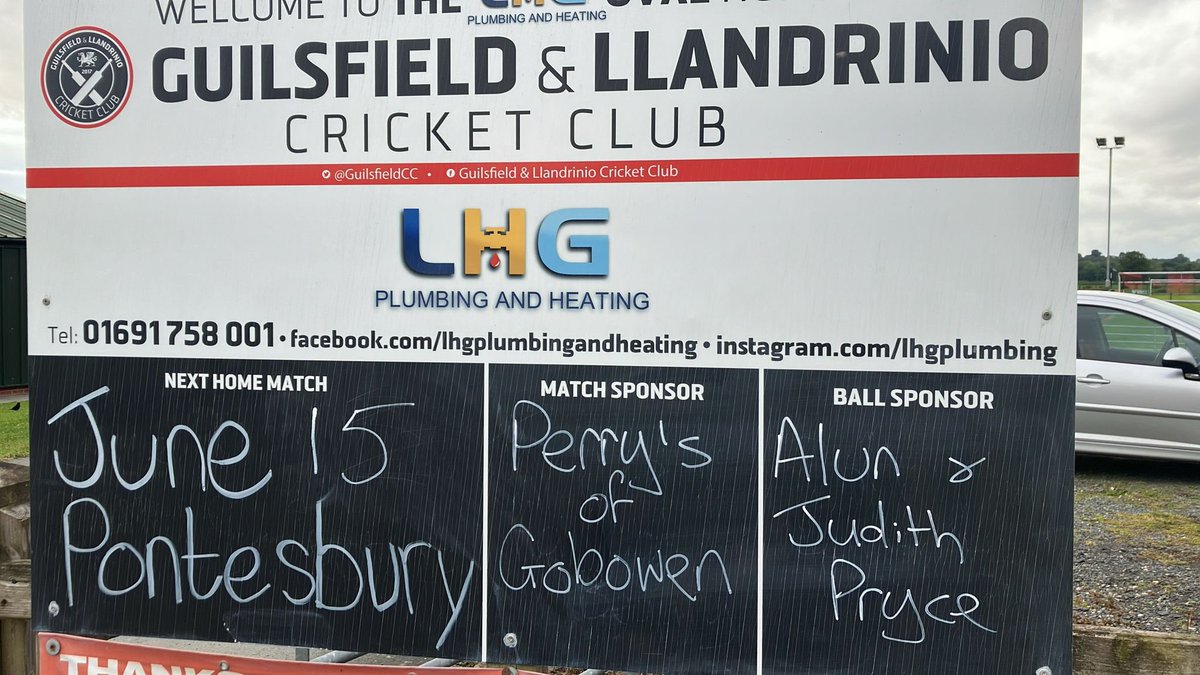 WELCOME TO THE LHG OVAL
PLUMBING AND HEATING
GUILSFIELD & LLANDRINIO
CRICKET CLUB
GUILSFIELD & LLANDRINIO
2017
CRICKET CLUB
@GuilsfieldCC • Guilsfield & Llandrinio Cricket Club
LHG
PLUMBING AND HEATING
Tel: 01691 758 001 • facebook.com/lhgplumbingandheating • instagram.com/lhgplumbing
NEXT HOME MATCH
June 15
Pontesbury
MATCH SPONSOR
Perry's
of
Gobowen
BALL SPONSOR
Alun &
Judith
Pryce
THANKS